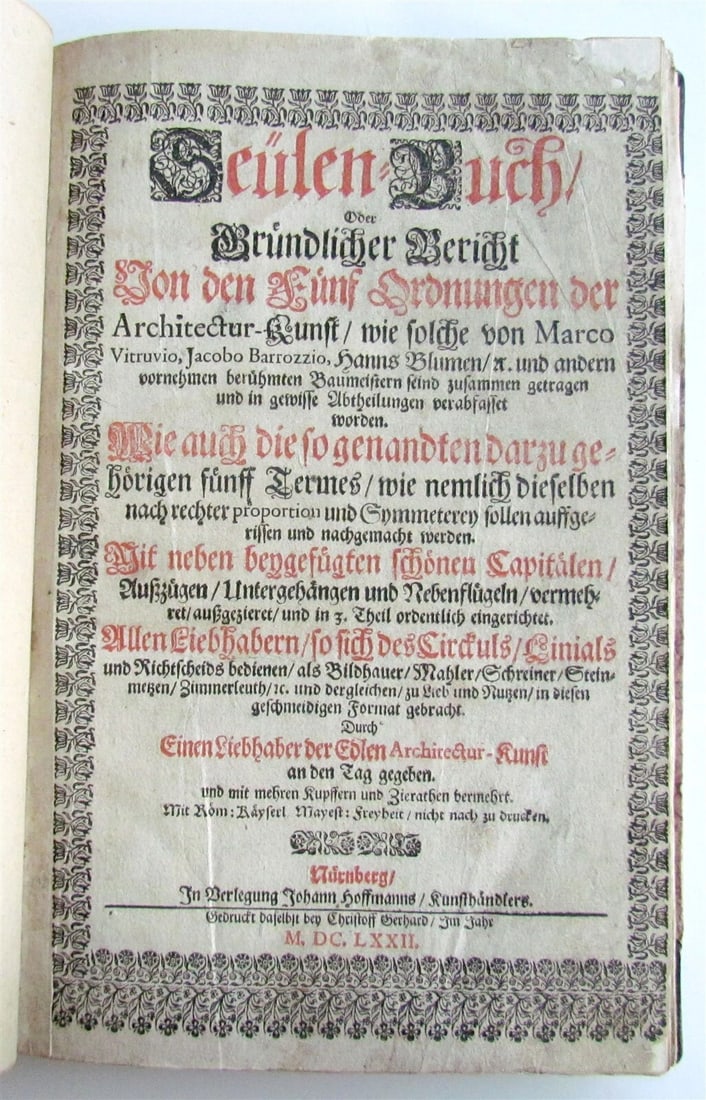 Seülen-Buch/
Oder
Gründlicher Bericht
Von den Fünf Ordnungen der
Architectur-Kunst/ wie solche von Marco
Vitruvio, Jacobo Barrozzio, Hanns Blumen/ ꝛc. und andern
vornehmen berühmten Baumeistern seind zusammen getragen
und in gewisse Abtheilungen verabfasset
worden.
Wie auch die so genandten darzu ge-
hörigen fünff Termes/ wie nemlich dieselben
nach rechter proportion und Symmeterey sollen auffge-
rissen und nachgemacht werden.
Mit neben beygefügten schönen Capitälen/
Außzügen/ Untergehängen und Nebenflügeln/ vermeh-
ret/ außgezieret/ und in 3. Theil ordentlich eingerichtet.
Allen Liebhabern/ so sich des Circkuls/ Linials
und Richtscheids bedienen/ als Bildhauer/ Mahler/ Schreiner/ Stein-
metzen/ Zimmerleuth/ ꝛc. und dergleichen/ zu Lieb und Nutzen/ in diesen
geschmeidigen Format gebracht.
Durch
Einen Liebhaber der Edlen Architectur-Kunst
an den Tag gegeben.
und mit mehren Kupffern und Zierathen vermehrt.
Mit Röm: Käyserl. Mayest: Freyheit/ nicht nach zu drucken.
Nürnberg/
In Verlegung Johann Hoffmanns/ Kunsthändlers.
Gedruckt daselbst bey Christoff Gerhard/ Im Jahr
M. DC. LXXII.